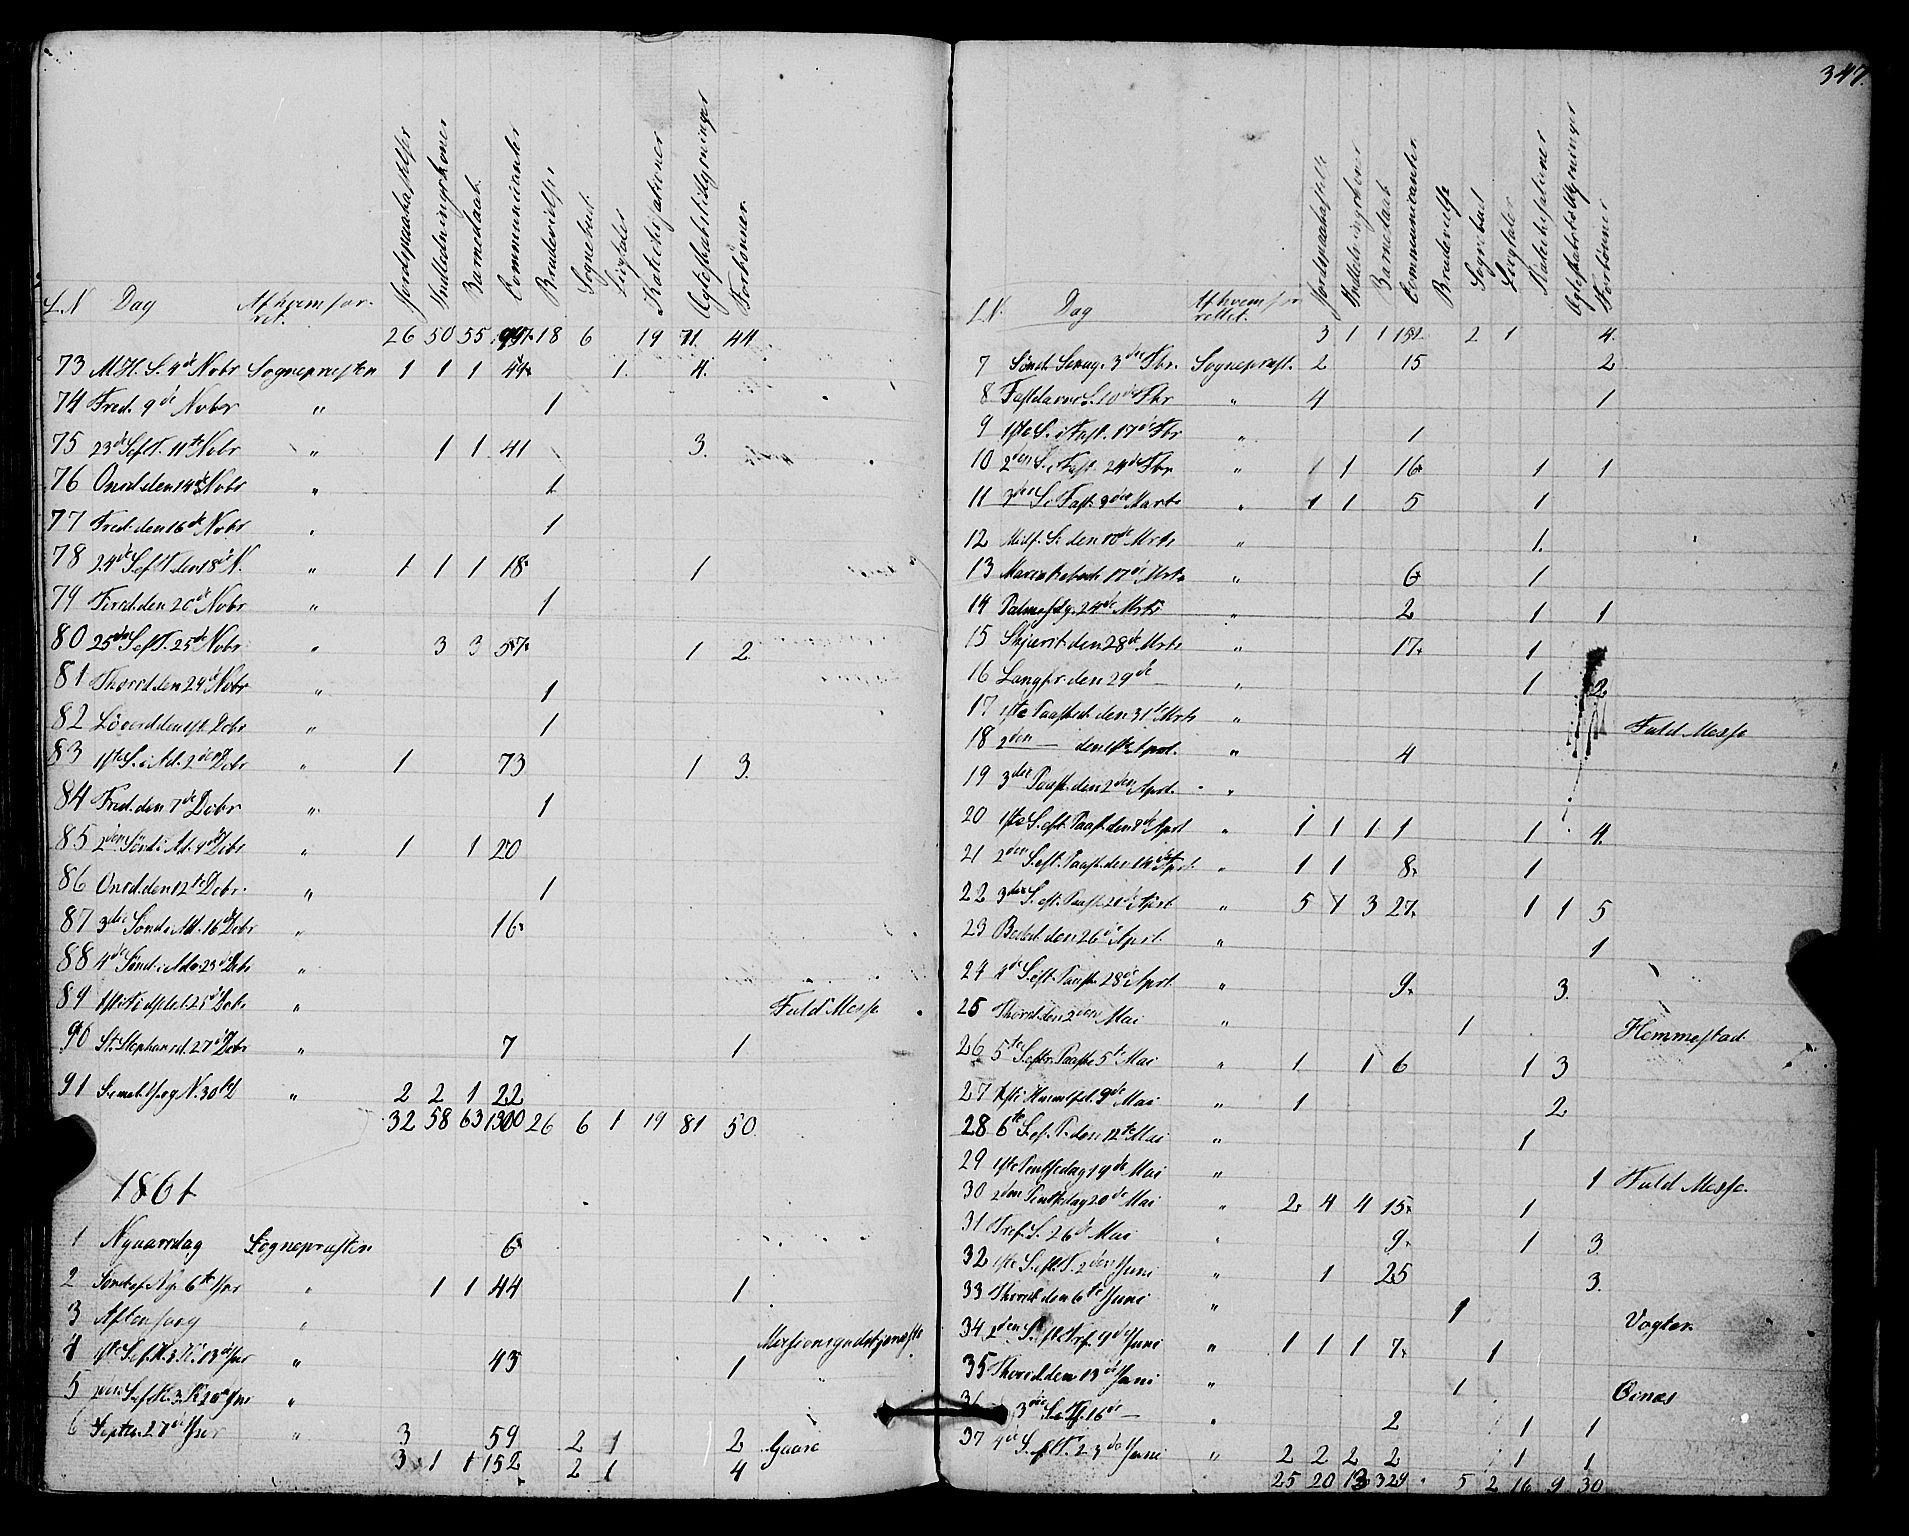 347.
L.N Dag Af hvem for-
ret. Jordspaakastelser Indledningskoner Barnedaab Communicanter Brudevielser Sognebud Ligtaler Katechisationer Ægteskabstillysninger Forbønner
26 50 55 18 6 19 71 44
73 M.H.S. 4de Novbr Sognepræsten 1 1 1 1 4
74 Fred. 9de Novbr " 1
75 23de S.ef.T. 11te Novbr " 1 1 41 3
76 Onsd. den 14de Novbr " 1
77 Fred. den 16de Novbr " 1
78 24de S.ef.T. den 18de N. " 1 1 1 18 1
79 den 20de Novbr " 1
80 25de S.ef.T. 25de Novbr " 3 3 57 1 2
81 Thorsd. den 29de Novbr " 1
82 Löverd. den 1ste Debr " 1
83 1ste S. i Ad. 2den Debr " 1 73 1 3
84 Fred. den 7de Debr " 1
85 2den Sönd. i Ad. 9de Debr " 1 1 20
86 Onsd. den 12te Debr. " 1
87 3die Sönd. i Ad. 16de Debr " 16
88 4de Sönd. i Adv. 23de Debr "
89 1ste Juledg. d. 25de Debr " Fuld Messe
90 St. Stephansd. 27de Debr " 7 1
91 S. mel. J. og N. 30te " 2 2 1 22
32 58 63 1300 26 6 1 19 81 50
1861
1 Nyaarsdag Sognepræsten 6
2 Sönd. ef. Ny. 6te Jnr " 1 1 44 1
3 Aftensang " Missionsgudstjeneste
4 1ste S.ef.H.3.K. 13de Jnr " 43 1
5 2den S.ef.H.3.K. 20de Jnr "
6 Septu. 27de Jnr " 3 59 2 1 2 Gaare
3 1 1 152 2 1 4
L.N. Dag Af hvem for-
rettet. Jordspaakastelse Indledningskoner Barnedaab Communicanter Brudevielse Sognebud Ligtaler Katechisationer Ægteskabstillysninger Forbønner
3 1 1 152 2 1 4
7 Sönd. Sexag. 3die Fbr. Sognepræst. 2 15 2
8 Fastelavns S. 10de Fbr " 4 1
9 1ste S. i Fast. 17de Fbr " 1
10 2den S. i Fast. 24de Fbr " 1 1 16 1 1
11 3die S. i Fast. 3die Marts " 1 1 5 1
12 Midf. S. den 10de Mrts " 1
13 Maria Bebud. 17de Mrts " 6 1
14 Palmesdg. 24de Mrts " 2 1 1
15 Skjærst. den 28de Mrts " 17 1
16 Langfr. den 29de " 1 2
17 1ste Paasked. den 31te Mrts " Fuld Messe
18 2den — den 1ste Aprl. " 4
19 3die Paask. den 2den Aprl. "
20 1ste S. eft. Paask. den Aprl " 1 1 1 1 1 4
21 2den S. eft. Paask. den 14de Aprl. " 1 1 8 1
22 3die S. eft. Paask. Aprl " 5 1 3 27 1 1 5
23 Beded. den 26de Aprl. " 1
24 4de S. eft. Paaske 28de Aprl. " 9 3
25 Thorsd. den 2den Mai " 1 Hemmestad
26 5te S. eftr. Paaske 5te Mai " 1 1 6 1 3
27 Kristi Himmelf. 9de Mai " 1 2
28 6te S. ef. P. den 12te Mai " 1
29 1ste Pentsedag 19de Mai " 1 Fuld Messe.
30 2den Pentsedag 20de Mai " 2 4 4 15 1
31 Tref. S. 26de Mai " 9 1 3
32 1ste S. eft. T. 2den Juni " 1 25 3
33 Thorsd. den 6te Juni " 1 Vogter
34 2den S. eft. Tref. 9de Juni " 1 1 1 7 1
35 Thorsd. den 13de Juni " 1
36 3die S. ef. Tf. 16de — " 2 1 1
37 4de S. eft. T. 23de Juni " 2 2 2 2 1 1
25 20 13 324 5 2 16 9 30